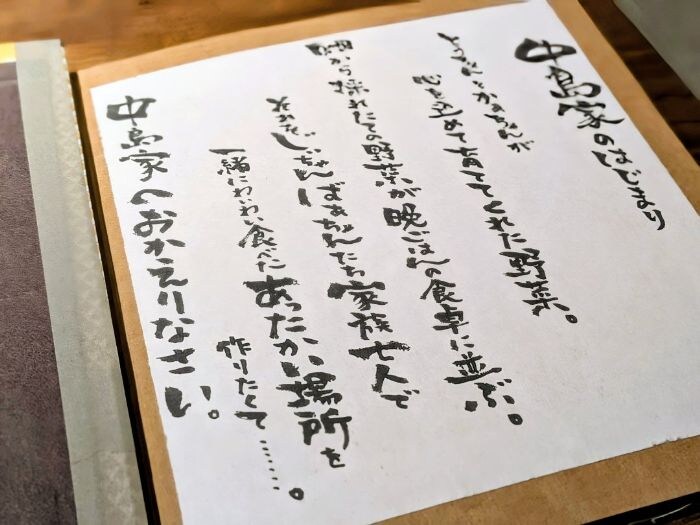 中島家のはじまり
とうちゃんとかあちゃんが
心を込めて育ててくれた野菜。
畑から採れたての野菜が晩ごはんの食卓に並ぶ。
それをじいちゃんばあちゃんたち家族七人で
一緒にわいわい食べたあったかい場所を
作りたくて……。
中島家へおかえりなさい。